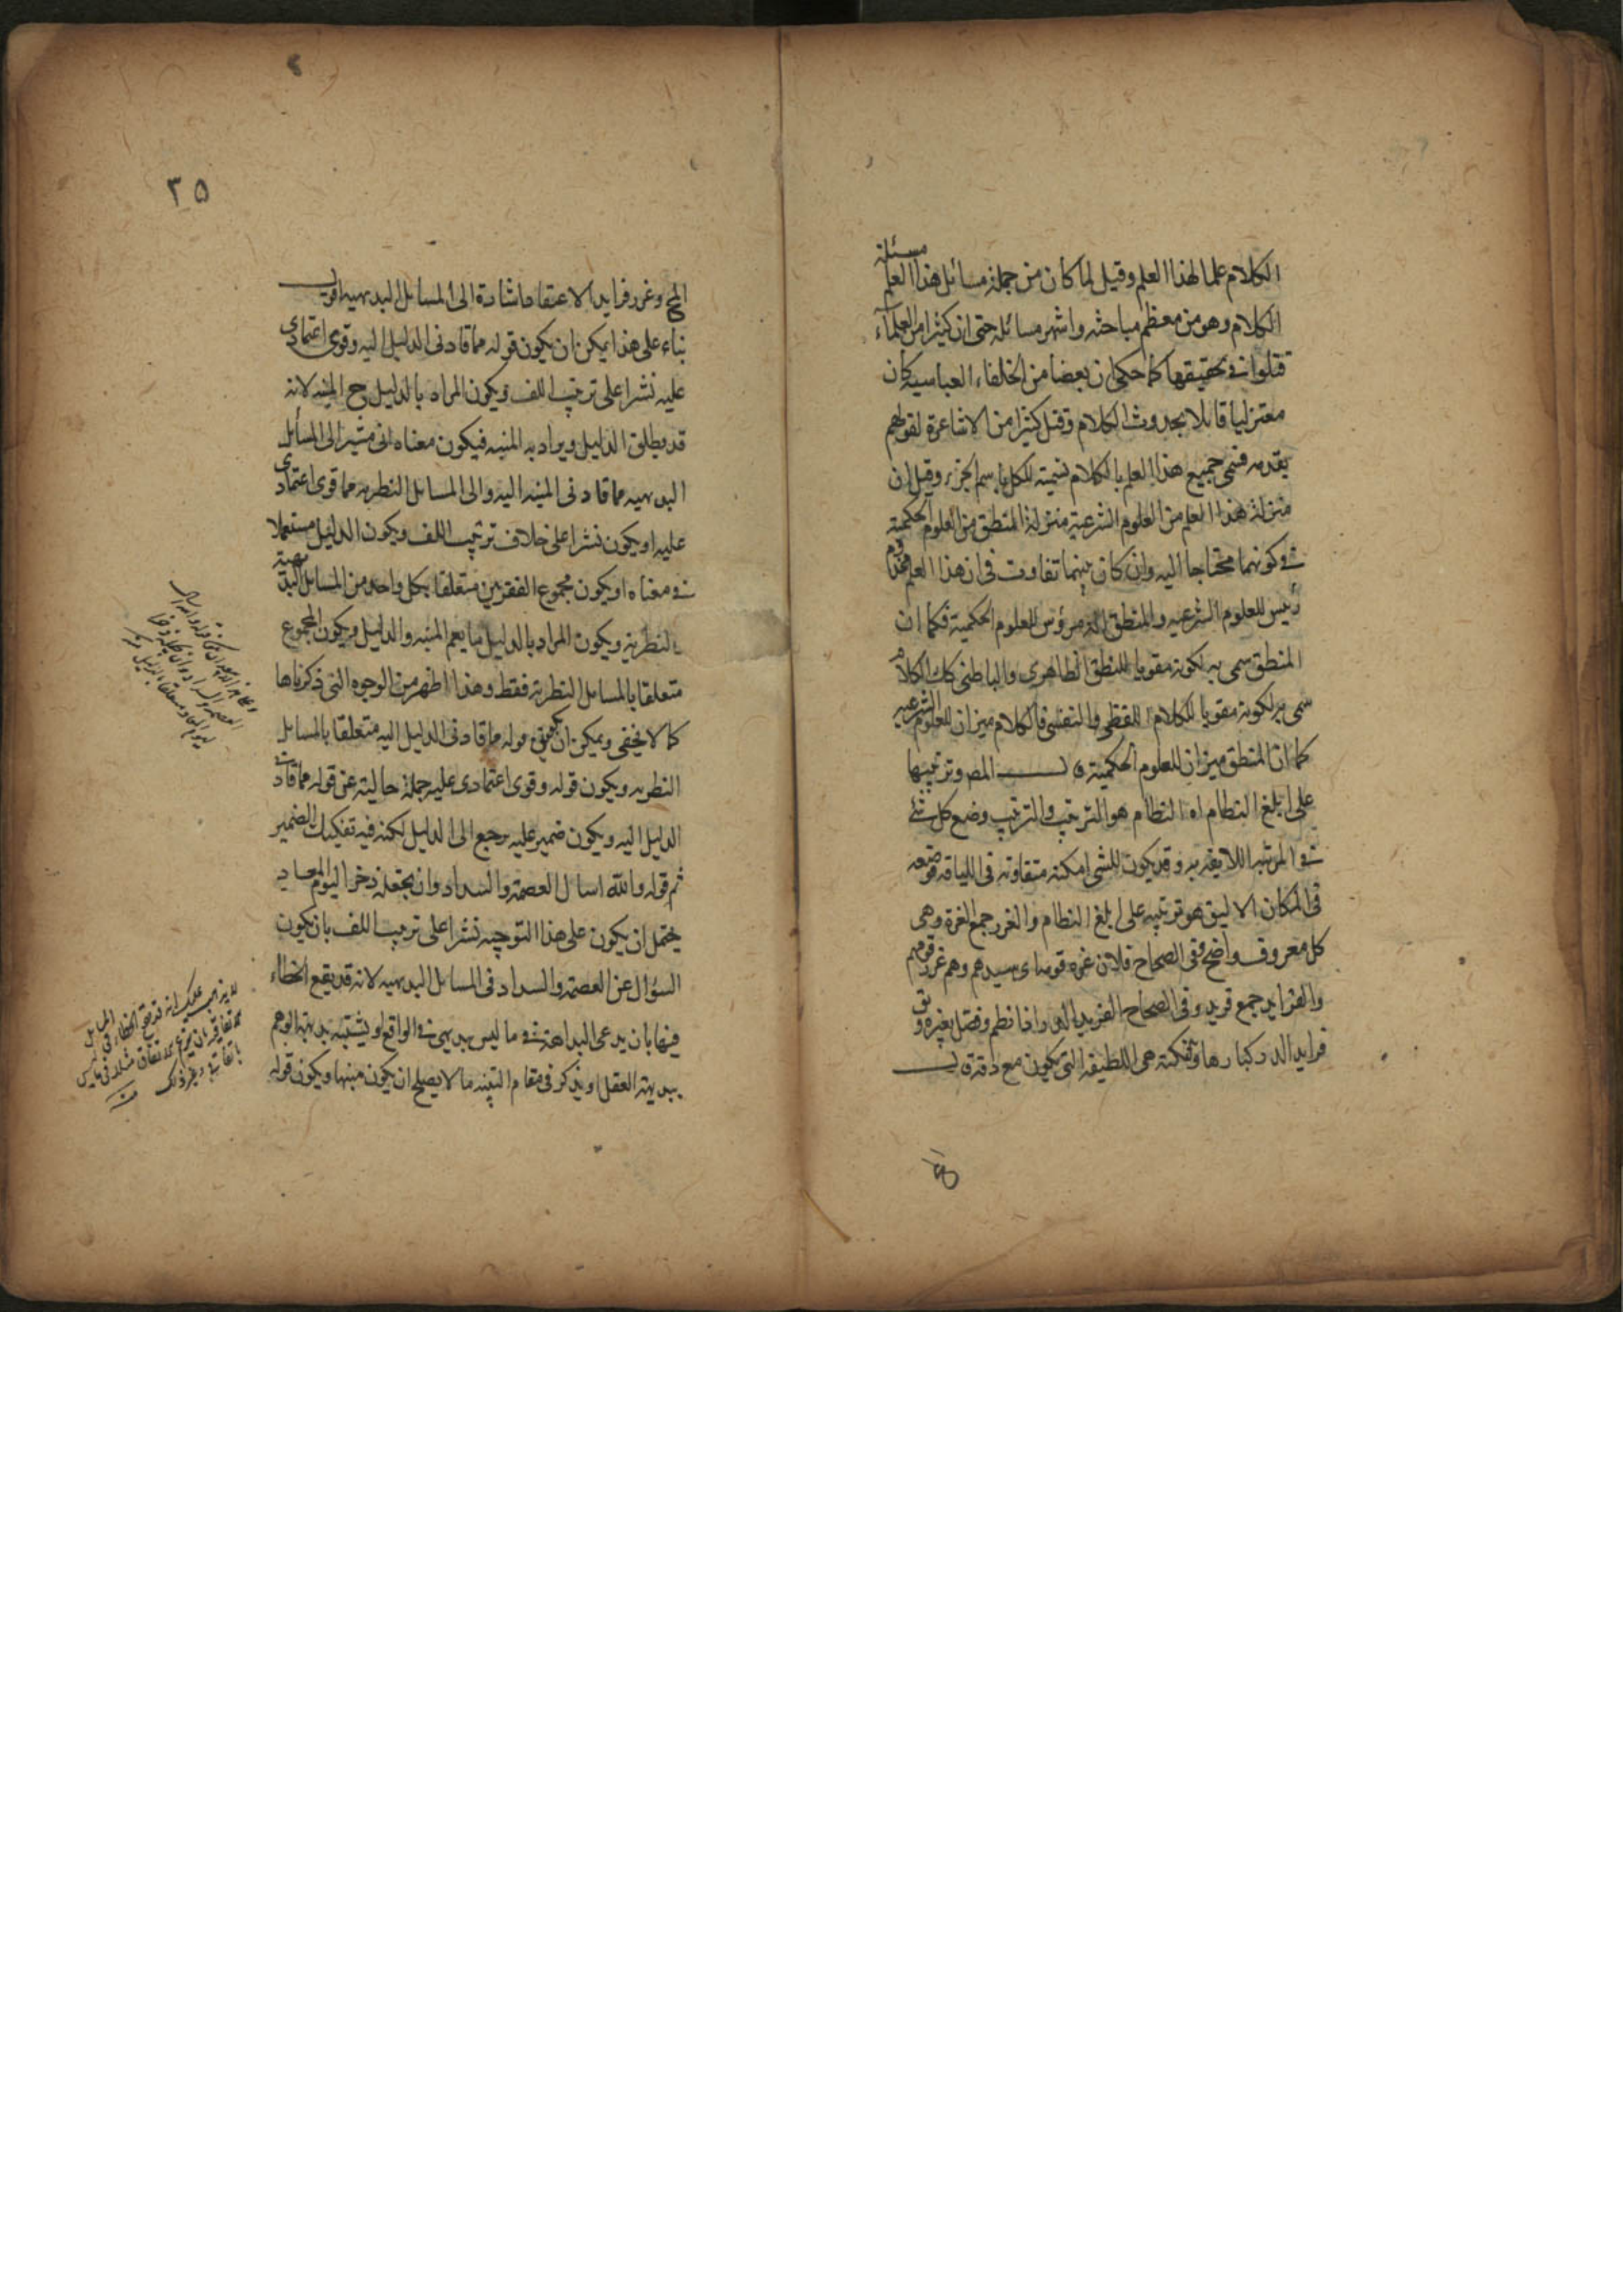 الكلام علما لهذا العلم وقيل لما كان من جملة مسائل هذا العلم مسئلة
الكلام وهو من معظم مباحثه واشهر مسائله حتى ان كثيرا من العلماء
قتلوا في تحقيقها كما حكى ان بعضا من الخلفاء العباسيه كان
معتزليا قائلا بحدوث الكلام وقتل كثيرا من الاشاعرة لقولهم
بقدمه فسمى جميع هذا العلم بالكلام تسمية للكل باسم الجزء وقيل ان
منزلة هذا العلم من العلوم الشرعية منزلة المنطق من العلوم الحكمية
في كونهما محتاجا اليه وان كان بينهما تفاوت في ان هذا العلم مخدوم
رئيس للعلوم الشرعيه والمنطق مرؤس للعلوم الحكمية فكما ان
المنطق سمى به لكونه مقويا للنطق الظاهري والباطني كك الكلام
سمى به لكونه مقويا للكلام اللفظي والنفسي فالكلام ميزان للعلوم الشرعيه
كما ان المنطق ميزان للعلوم الحكمية المص وترتيبها
على ابلغ النظام اه النظام هو الترتيب والترتيب وضع كل شئ
في المرتبه اللايقه به وقد يكون للشى امكنه متفاوته في اللياقه فوضعه
في المكان الاليق هو ترتيبه على ابلغ النظام والغرر جمع الغرة وهى
كل معروف واضح ففي الصحاح فلان غره قومه اى سيدهم وهم غرر قومهم
والفرايد جمع فريد وفي الصحاح الفريد الدر اذا نظم وفصل بغيره ويق
فرايد الدر كبارها والنكته هي اللطيفه التي تكون مع دقة
٢٥
الحج وغرر فرايد الاعتقاد اشارة الى المسائل البديهيه
بناء على هذا يمكن ان يكون قوله مما قادني الدليل اليه وقوى اعتمادي
عليه نشرا على ترتيب اللف ويكون المراد بالدليل ح المنبه لانه
قد يطلق الدليل ويراد به المنبه فيكون معناه اني مشير الى المسائل
البديهيه مما قادني المنبه اليه والى المسائل النظريه مما قوى اعتمادي
عليه او يكون نشرا على خلاف ترتيب اللف ويكون الدليل مستعملا
في معناه او يكون مجموع الفقرتين متعلقا بكل واحد من المسائل البديهية
والنظرية ويكون المراد بالدليل ما يعم المنبه والدليل ويكون المجموع
متعلقا بالمسائل النظرية فقط وهذا اظهر من الوجوه التي ذكرناها
كما لا يخفى ويمكن ان يكون قوله مما قادني الدليل اليه متعلقا بالمسائل
النظريه ويكون قوله وقوى اعتمادي عليه جملة حالية عن قوله مما قادني
الدليل اليه ويكون ضمير عليه يرجع الى الدليل لكنه فيه تفكيك الضمير
ثم قوله والله اسال العصمة والسداد وان يجعله ذخرا ليوم المعاد
يحتمل ان يكون على هذا التوجيه نشرا على ترتيب اللف بان يكون
السؤال عن العصمة والسداد في المسائل البديهيه لانه قد يقع الخطاء
فيها بان يدعى البداهة في ما ليس بديهى في الواقع او يشتبه بديهة الوهم
ببديهة العقل او يذكر في مقام التنبيه ما لا يصلح ان يكون منبها ويكون قوله